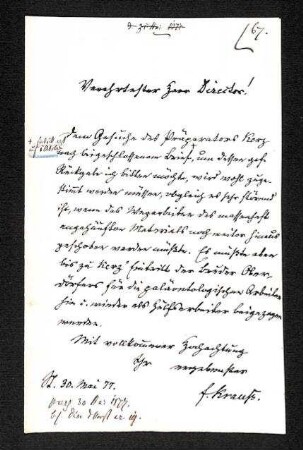 67.
Verehrtester Herr Director!
Dem Gesuche des Präparators Kerz
nach beigeschlossenem Brief, um dessen gef.
Rückgabe ich bitten möchte, wird wohl zuge-
stimmt werden müssen, obgleich es sehr störend
ist, wenn das Wegarbeiten des massenhaft
angehäuften Materials noch weiter hinaus
geschoben werden müßte. Es müßte aber
bis zu Kerz' Eintritt der Bruder
für die palaeontologischen Arbeiten
hin u. wieder als Hülfsarbeiter beigezogen
werden.
Mit vollkommener Hochachtung
Ihr ergebenster
F. Krauß.
St. 30. Mai 77.
30 Mai 1877.